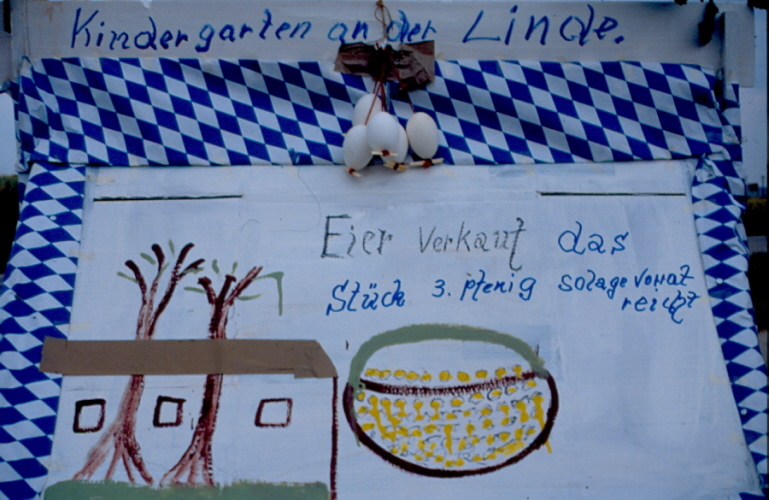 Kindergarten an der Linde.
Eier Verkauf das
Stück 3. pfenig solage Vorrat
reicht